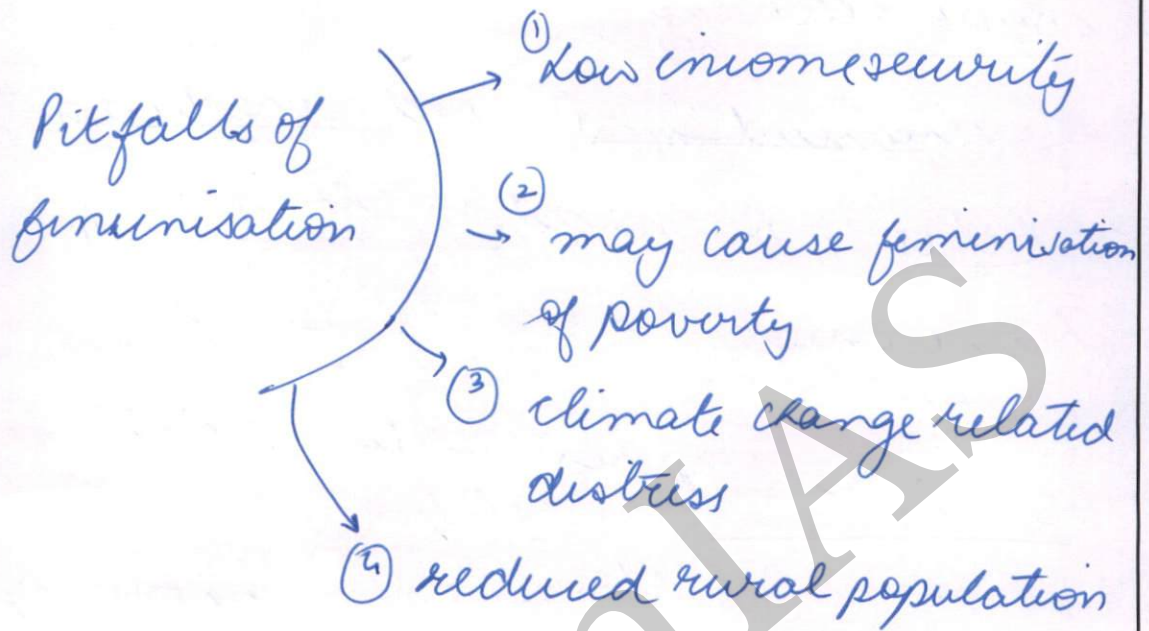 Pitfalls of
feminisation
① Low income security
② → may cause feminisation
of poverty
③ climate change related
distress
④ reduced rural population
IAS